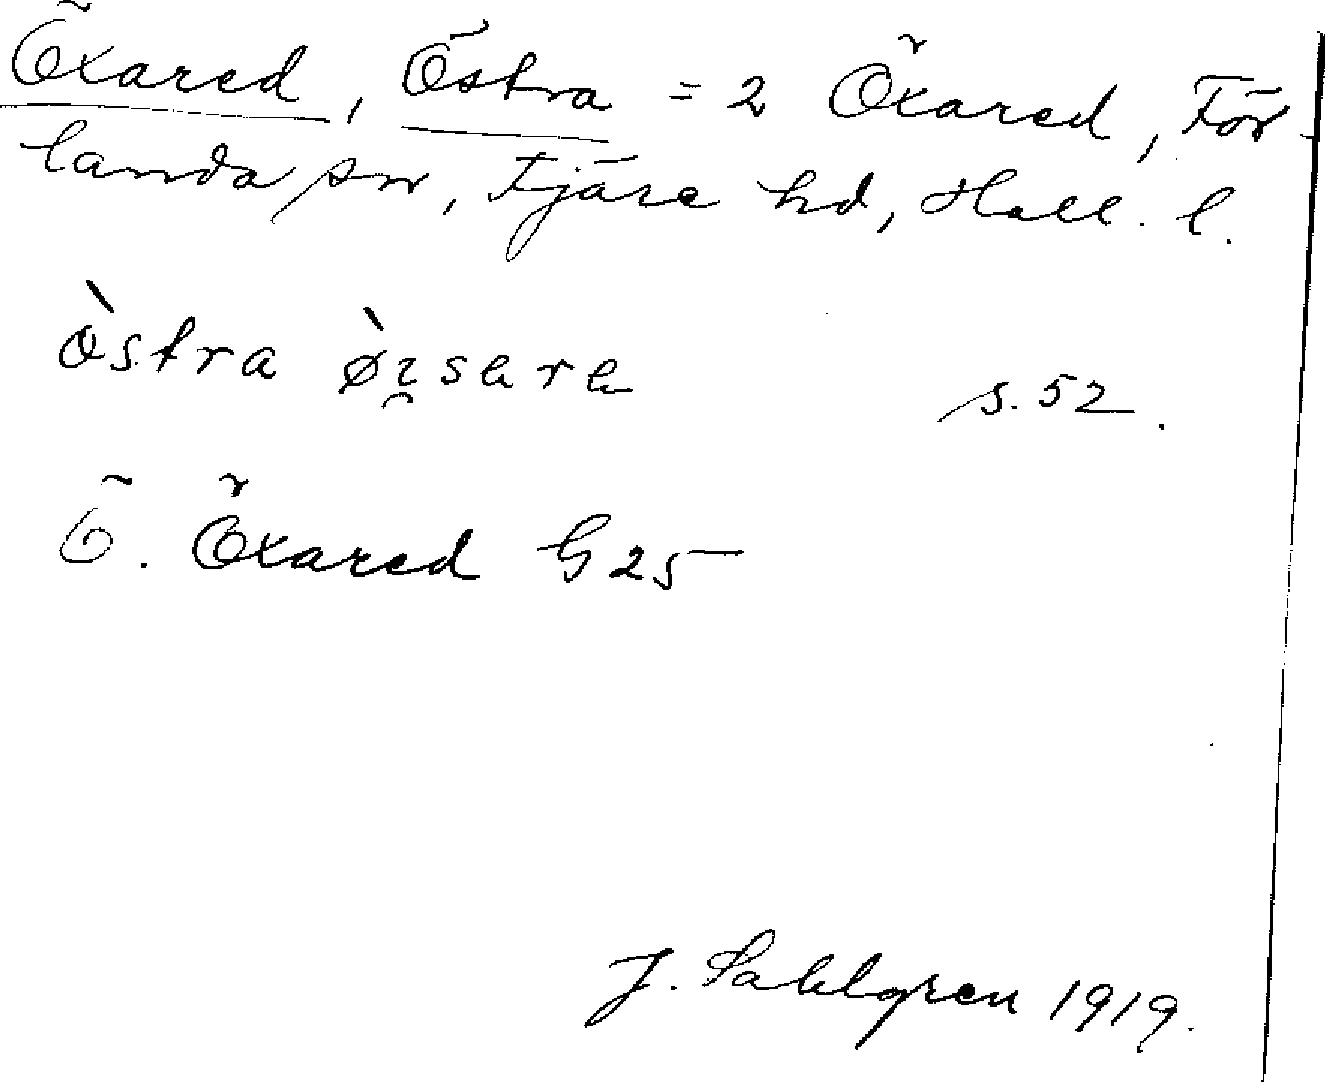 Öxared, Östra = 2 Öxared, För-
landa sn, Fjäre hd, Hall. l.
òstra
s. 52.
Ö. Öxared G 25
J. Sahlgren 1919.